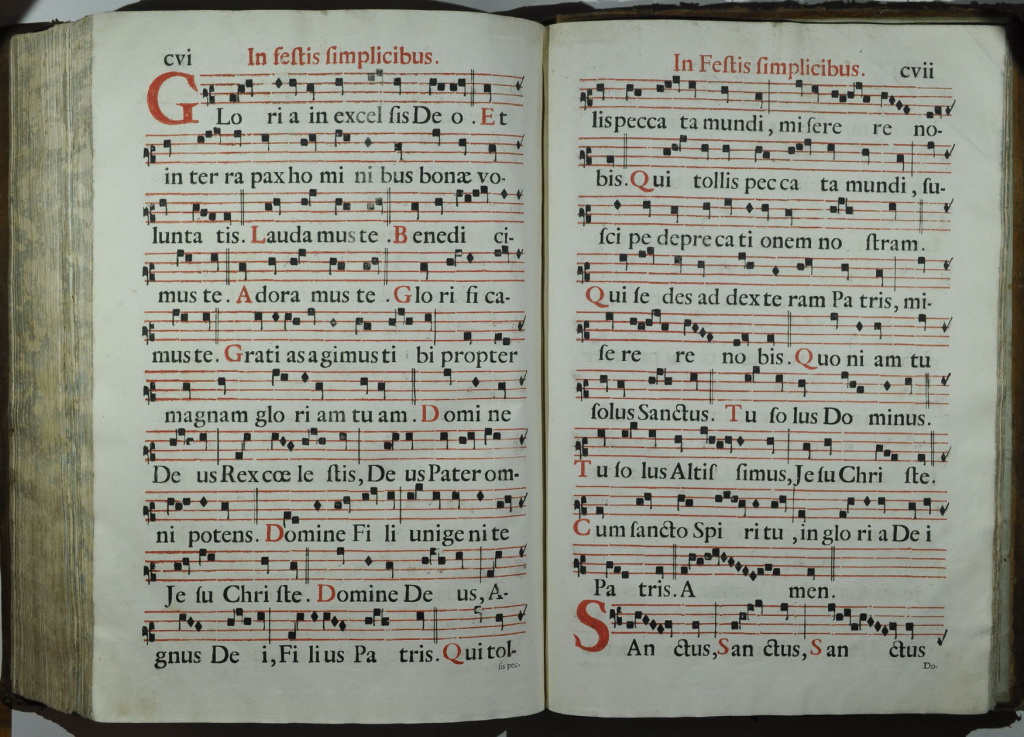 cvi In feſtis ſimplicibus.
GLo ri a in excel ſis De o. Et
in ter ra pax ho mi ni bus bonæ vo-
lunta tis. Lauda mus te. Benedi ci-
mus te. Adora mus te. Glo ri fi ca-
mus te. Grati as agimus ti bi propter
magnam glo ri am tu am. Domi ne
De us Rex cœ le ſtis, De us Pater om-
ni potens. Domine Fi li unige ni te
Je ſu Chri ſte. Domine De us, A-
gnus De i, Fi li us Pa tris. Qui tol-
lis pec-
In Feſtis ſimplicibus. cvii
lis pecca ta mundi, mi ſere re no-
bis. Qui tollis pec ca ta mundi, ſu-
ſci pe depre ca ti onem no ſtram.
Qui ſe des ad dex te ram Pa tris, mi-
ſe re re no bis. Quo ni am tu
ſolus Sanctus. Tu ſo lus Do minus.
Tu ſo lus Altiſ ſimus, Je ſu Chri ſte.
Cum ſancto Spi ri tu, in glo ri a De i
Pa tris. A men.
SAn ctus, San ctus, San ctus
Do-